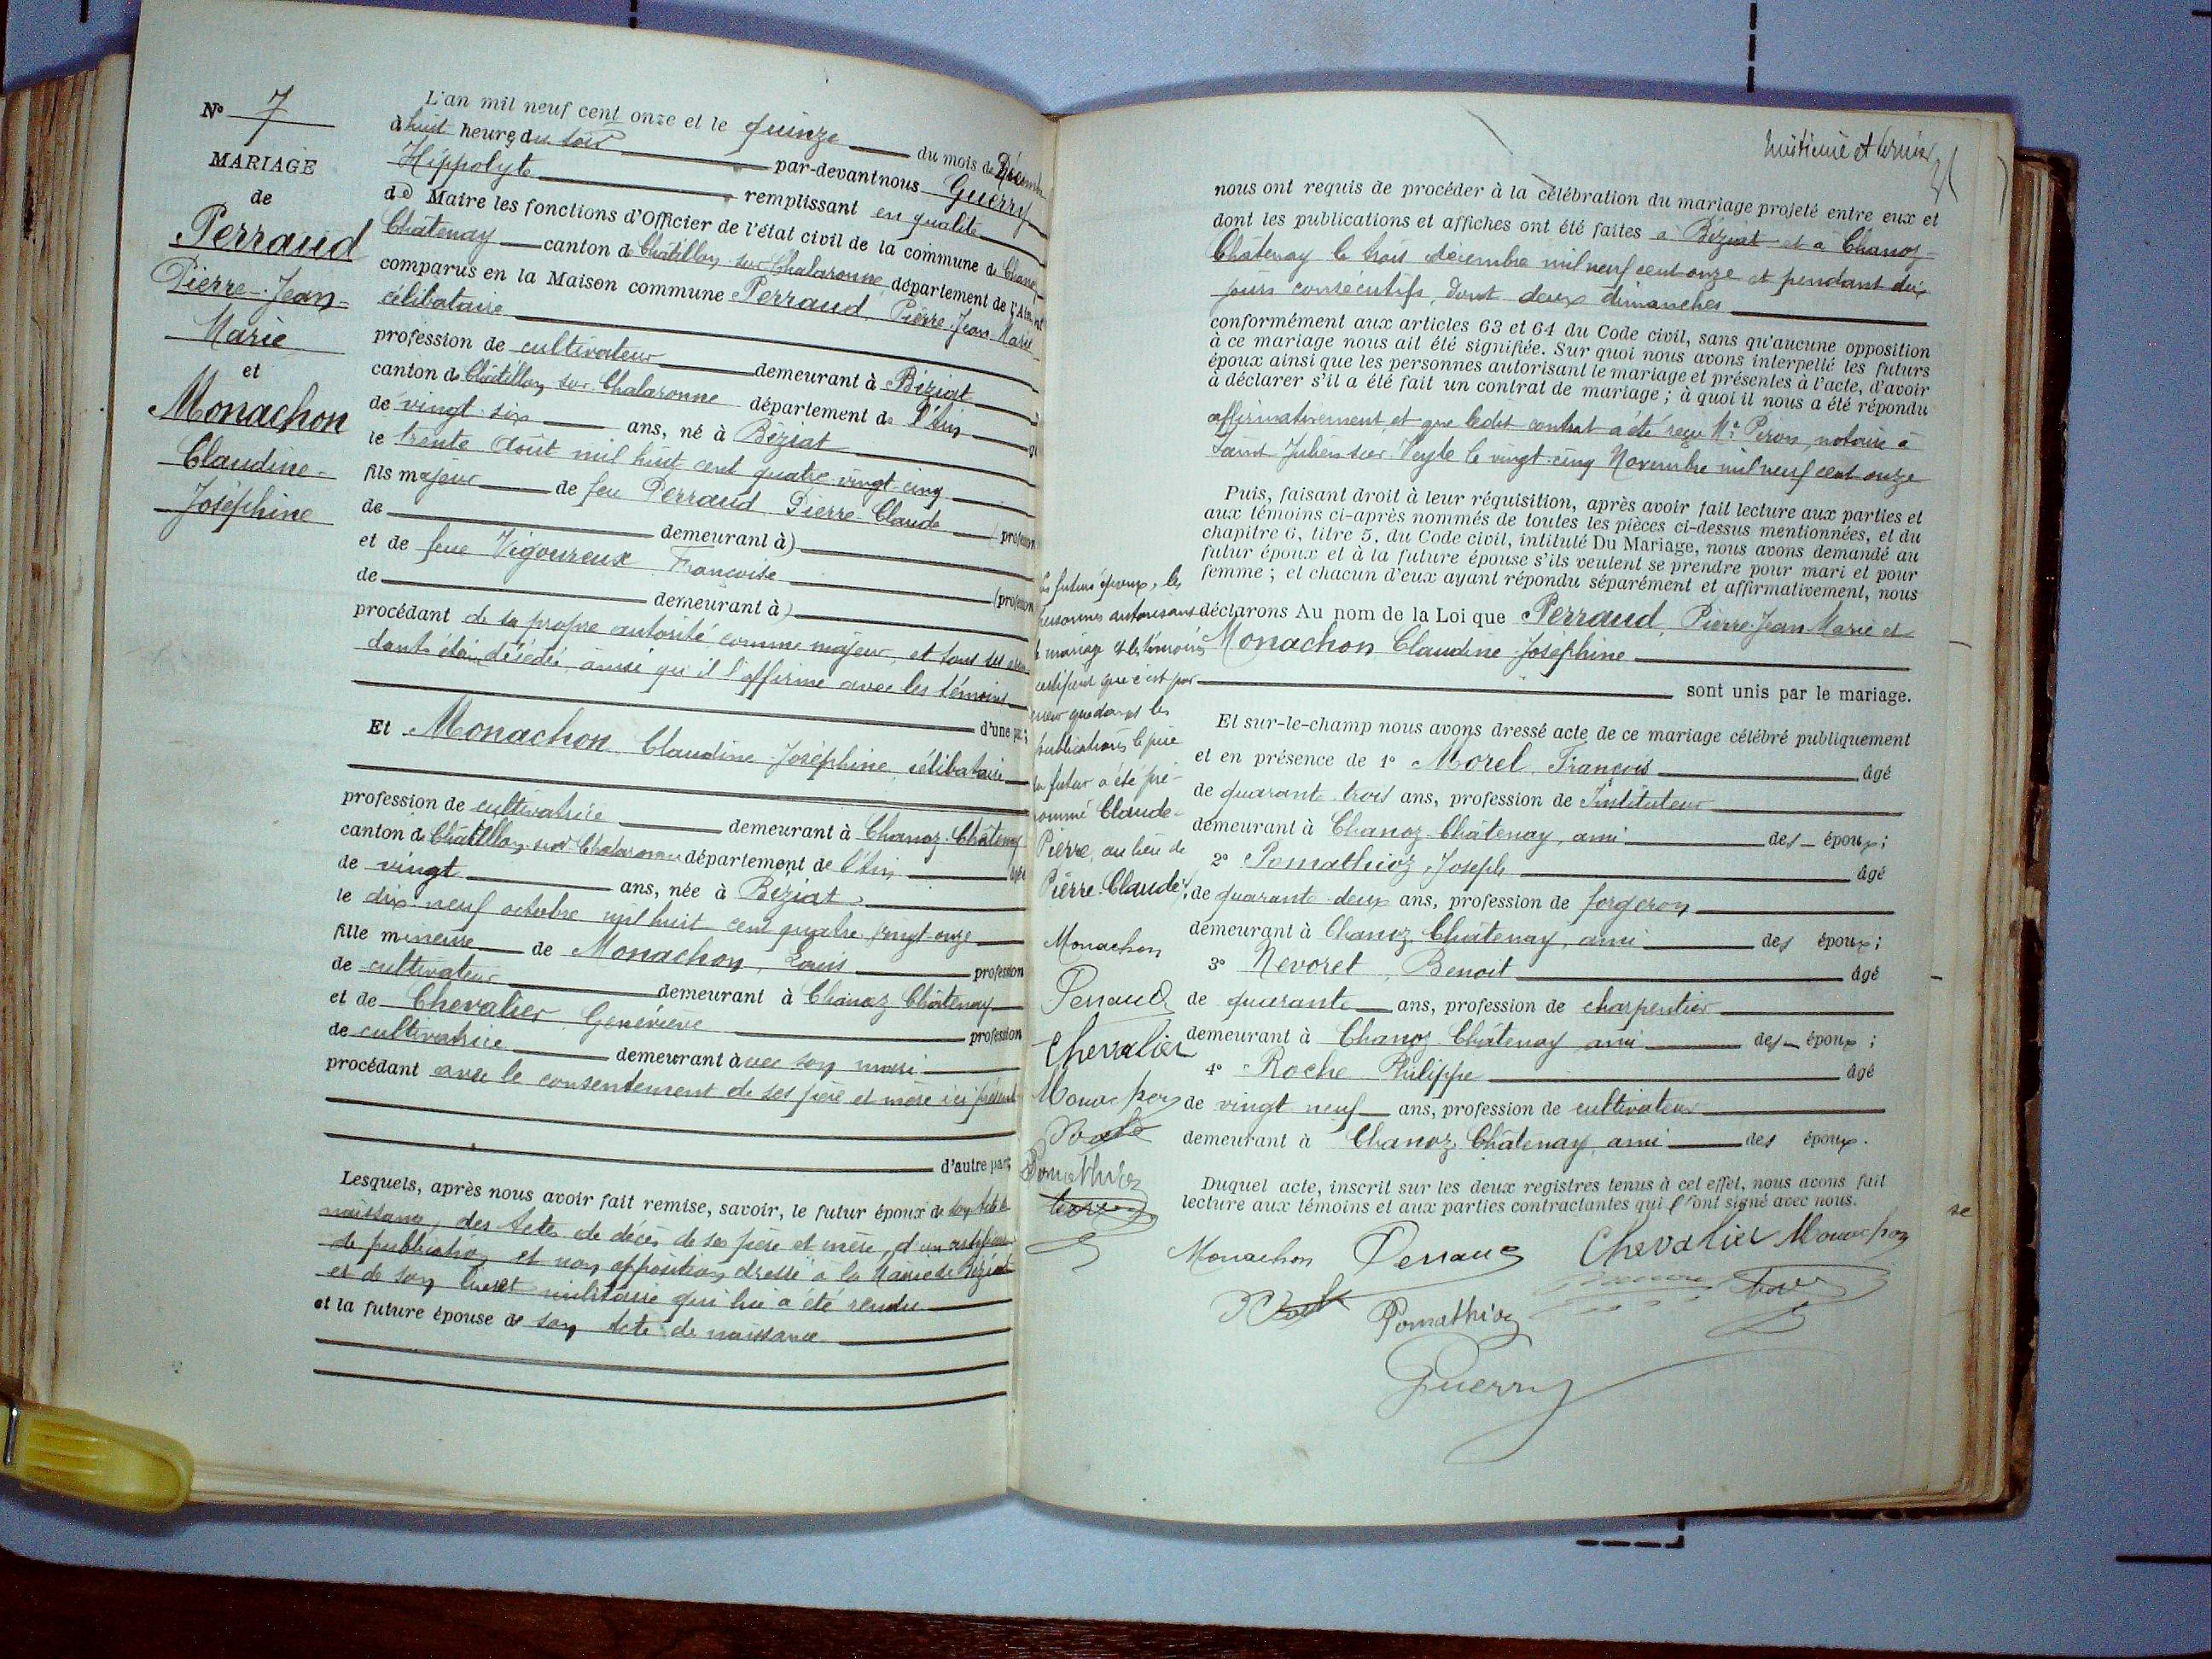 N° 7
MARIAGE
de
Perraud
Pierre-Jean-
Marie
et
Monachon
Claudine-
Joséphine
L'an mil neuf cent onze et le quinze du mois de Décembre
à huit heures du soir par-devant nous Guerry
Hippolyte remplissant en qualité
de Maire les fonctions d'Officier de l'état civil de la commune de Chanoz
Châtenay canton de Châtillon sur Chalaronne, département de l'Ain, ont
comparus en la Maison commune Perraud, Pierre-Jean-Marie
célibataire
profession de cultivateur demeurant à Béziat
canton de Châtillon sur Chalaronne département de l'Ain
de vingt-six ans, né à Béziat
le trente Août mil huit cent quatre-vingt-cinq
fils majeur de feu Perraud Pierre Claude (profession
de demeurant à)
et de feue Vigoureux Françoise (profession
de demeurant à)
procédant de sa propre autorité comme majeur, et tous ses ascen
dants étant décédés, ainsi qu'il l'affirme avec les témoins
d'une part;
Et Monachon Claudine Joséphine, célibataire
profession de cultivatrice demeurant à Chanoz-Châtenay
canton de Châtillon sur Chalaronne département de l'Ain âgée
de vingt ans, née à Béziat
le dix-neuf octobre mil huit cent quatre vingt-onze
fille mineure de Monachon, Louis profession
de cultivateur demeurant à Chanoz Châtenay
et de Chevalier Geneviève profession
de cultivatrice demeurant avec son mari
procédant avec le consentement de ses père et mère ici présents
d'autre part;
Lesquels, après nous avoir fait remise, savoir, le futur époux de son Acte de
naissance, des Actes de décès de ses père et mère, d'un certificat
de publication et non opposition dressé à la Mairie de Béziat
et de son livret militaire qui lui a été rendu
et la future épouse de son Acte de naissance
huitième et dernier
nous ont requis de procéder à la célébration du mariage projeté entre eux et
dont les publications et affiches ont été faites à Béziat et à Chanoz-
Châtenay le trois décembre mil neuf cent onze et pendant dix
jours consécutifs, dont deux dimanches
conformément aux articles 63 et 64 du Code civil, sans qu'aucune opposition
à ce mariage nous ait été signifiée. Sur quoi nous avons interpellé les futurs
époux ainsi que les personnes autorisant le mariage et présentes à l'acte, d'avoir
à déclarer s'il a été fait un contrat de mariage; à quoi il nous a été répondu
affirmativement et que ledit contrat a été reçu Me Peron, notaire à
Saint Julien sur Veyle le vingt-cinq Novembre mil neuf cent onze
Puis, faisant droit à leur réquisition, après avoir fait lecture aux parties et
aux témoins ci-après nommés de toutes les pièces ci-dessus mentionnées, et du
chapitre 6, titre 5, du Code civil, intitulé Du Mariage, nous avons demandé au
futur époux et à la future épouse s'ils veulent se prendre pour mari et pour
femme; et chacun d'eux ayant répondu séparément et affirmativement, nous
déclarons Au nom de la Loi que Perraud, Pierre-Jean-Marie et
Monachon Claudine Joséphine
sont unis par le mariage.
Et sur-le-champ nous avons dressé acte de ce mariage célébré publiquement
et en présence de 1° Morel, François âgé
de quarante trois ans, profession de Instituteur
demeurant à Chanoz-Châtenay, ami des époux;
2° Pomathioz, Joseph âgé
de quarante-deux ans, profession de forgeron
demeurant à Chanoz Châtenay, ami des époux;
3° Nevoret, Benoit âgé
de quarante ans, profession de charpentier
demeurant à Chanoz Châtenay ami des époux;
4° Roche Philippe âgé
de vingt neuf ans, profession de cultivateur
demeurant à Chanoz Châtenay, ami des époux.
Duquel acte, inscrit sur les deux registres tenus à cet effet, nous avons fait
lecture aux témoins et aux parties contractantes qui l'ont signé avec nous.
Monachon Perraud Chevalier Monachon
Pomathioz
Guerry
Les futurs époux, les
personnes autorisant
le mariage et les témoins
certifient que c'est par
erreur que dans les
publications le père
du futur a été pré-
nommé Claude-
Pierre, au lieu de
Pierre Claude.
Monachon
Perraud
Chevalier
Monachon
Pomathioz